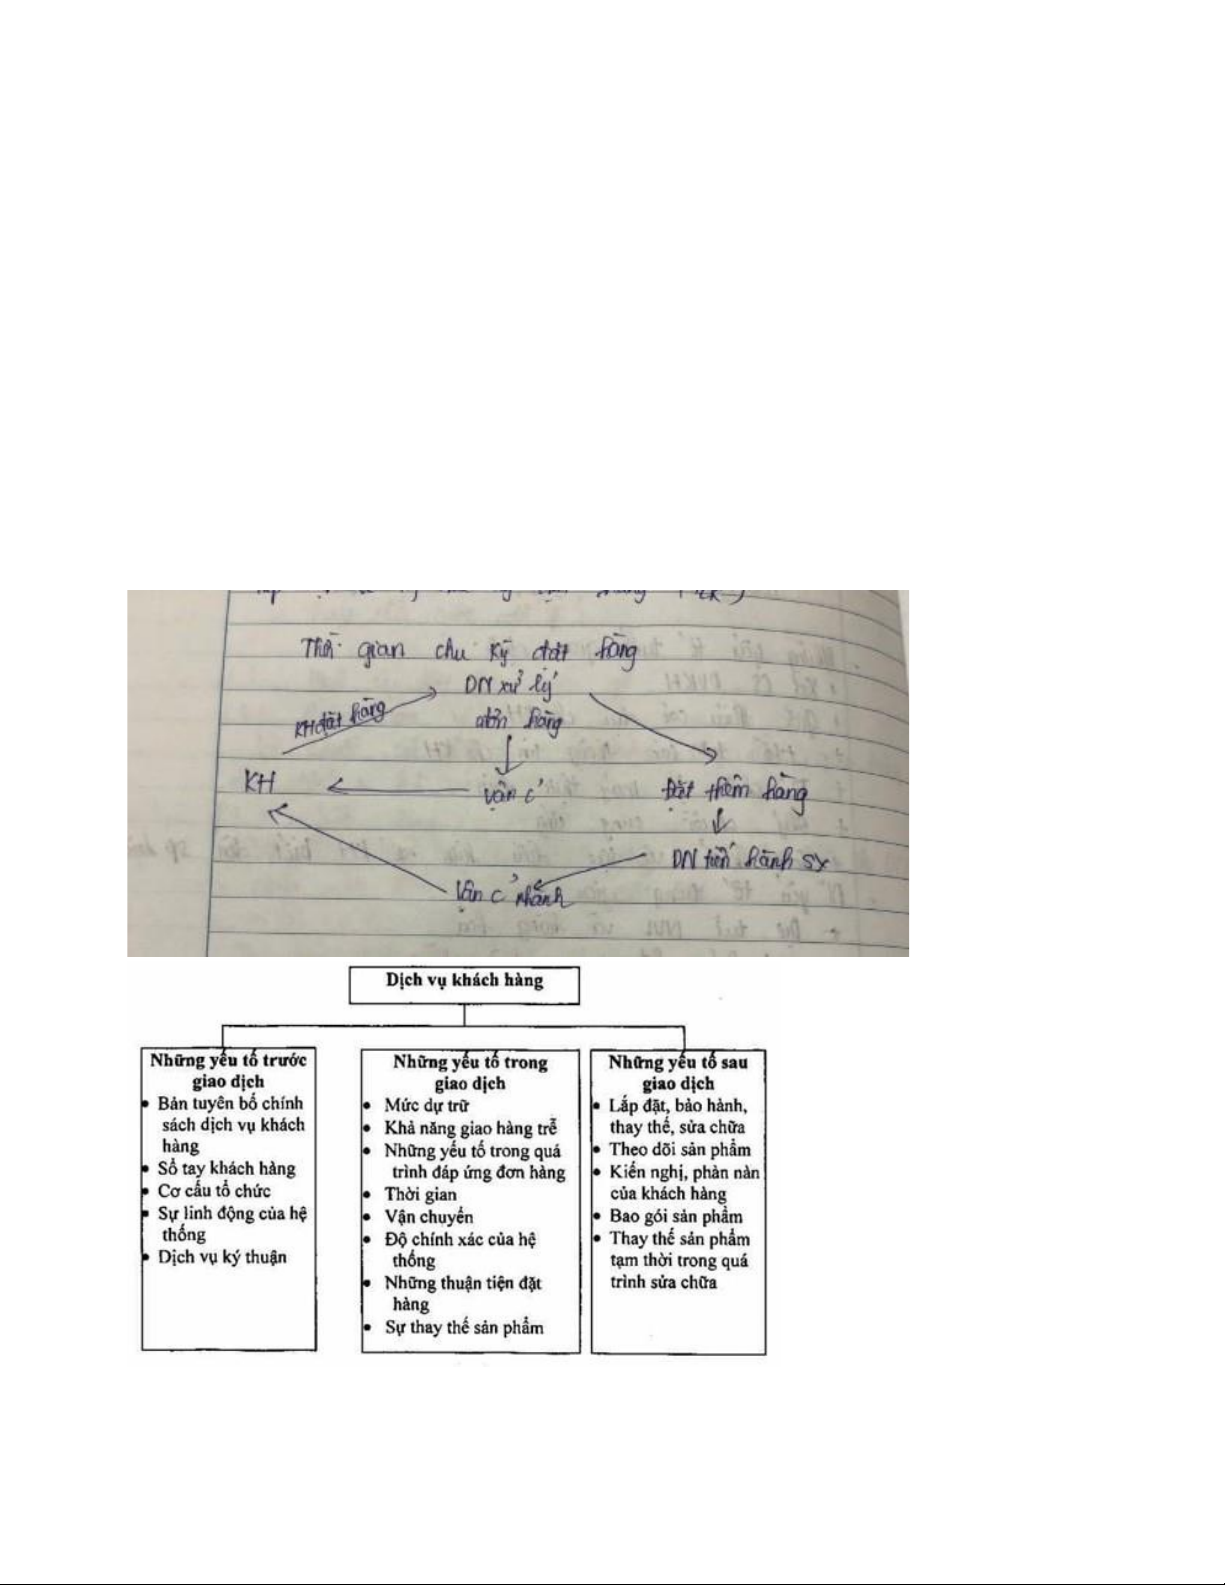 Thời gian chu kỳ đặt hàng
DN xử lý
đơn hàng
KH đặt hàng
KH
vận c'
Đặt thêm hàng
DN tiến hành sx
Vận c' nhành
Dịch vụ khách hàng
Những yếu tố trước
giao dịch
• Bản tuyên bố chính
sách dịch vụ khách
hàng
• Sổ tay khách hàng
• Cơ cấu tổ chức
• Sự linh động của hệ
thống
• Dịch vụ kỹ thuận
Những yếu tố trong
giao dịch
• Mức dự trữ
• Khả năng giao hàng trễ
• Những yếu tố trong quá
trình đáp ứng đơn hàng
• Thời gian
• Vận chuyển
• Độ chính xác của hệ
thống
• Những thuận tiện đặt
hàng
• Sự thay thế sản phẩm
Những yếu tố sau
giao dịch
• Lắp đặt, bảo hành,
thay thế, sửa chữa
• Theo dõi sản phẩm
• Kiến nghị, phàn nàn
của khách hàng
• Bao gói sản phẩm
• Thay thế sản phẩm
tạm thời trong quá
trình sửa chữa